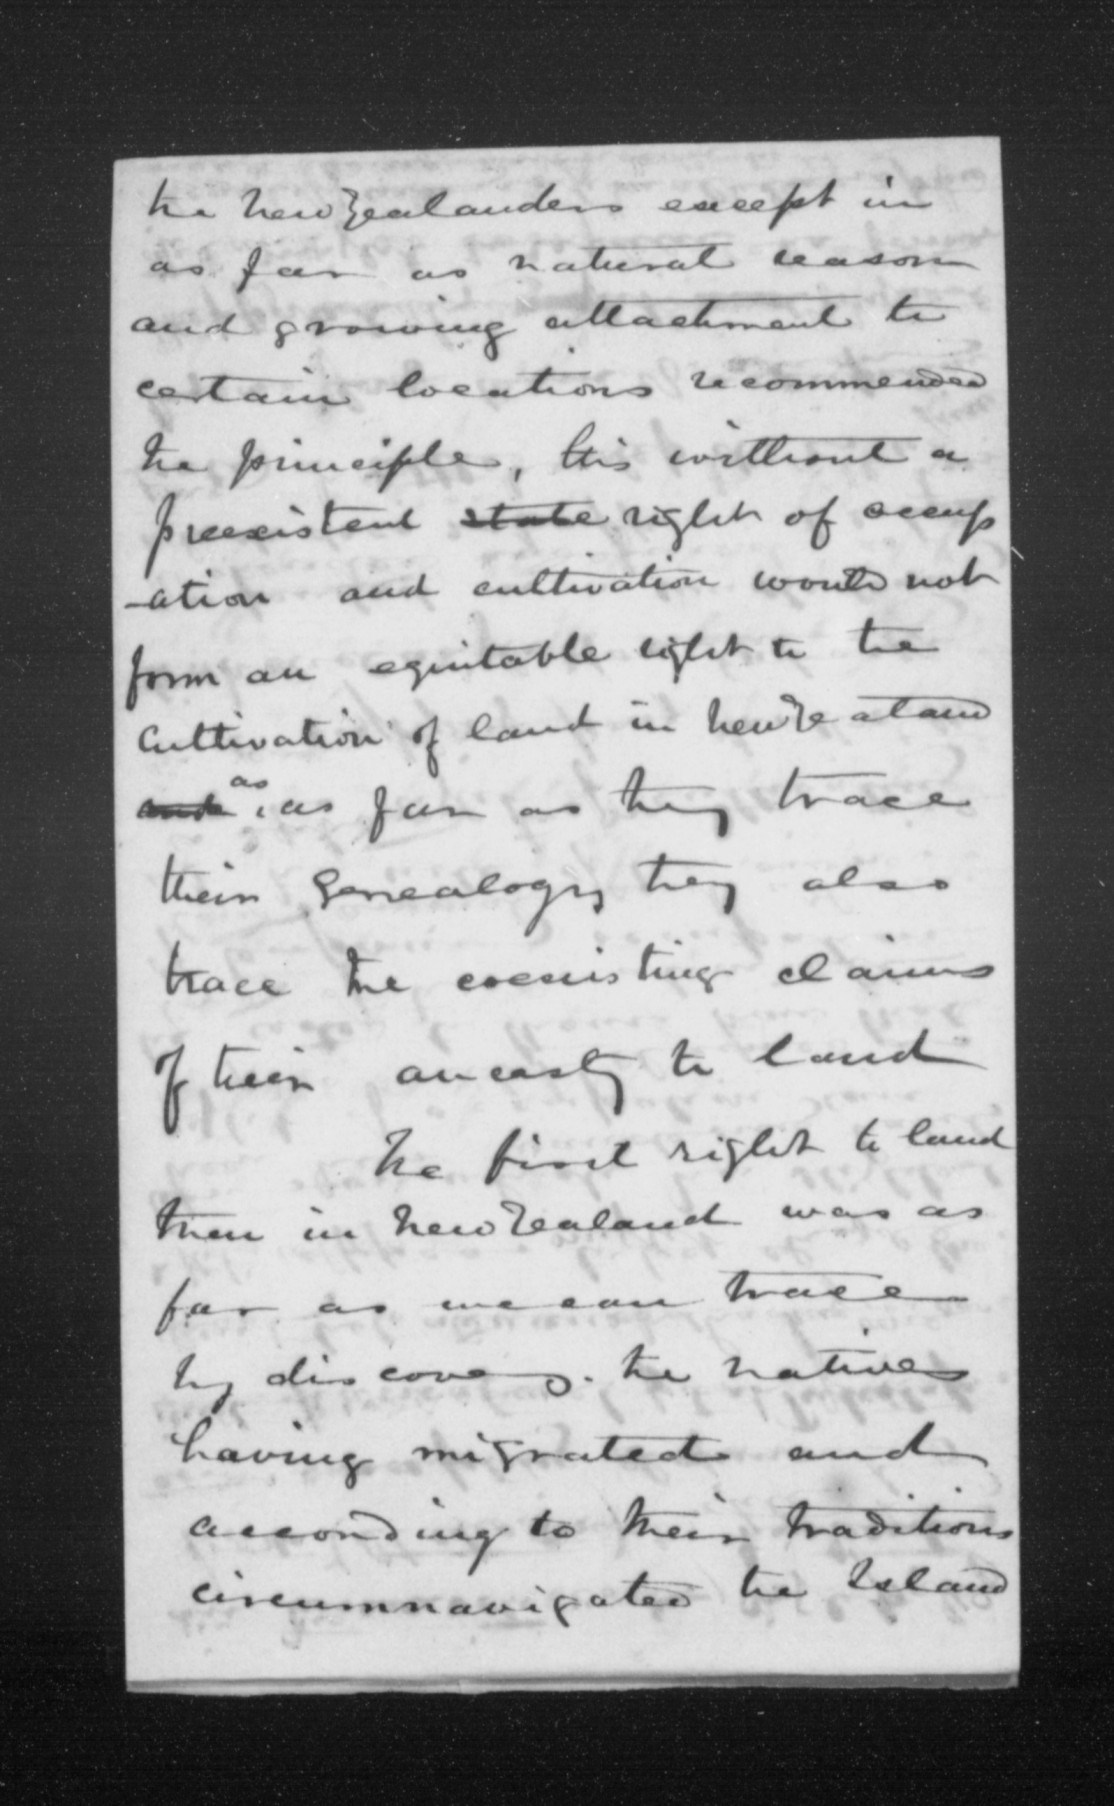 the New Zealanders except in
as far as natural reason
and growing attachment to
certain locations recommended
the principle, this without a
preexistent state right of occup
-ation and cultivation would not
form an equitable right to the
cultivation of land in New Zealand
and as, as far as they trace
their Genealogy they also
trace the coexisting claims
of their ancestry to land
The first right to land
then in New Zealand was as
far as we can trace
by discovery. the natives
having migrated and
according to their traditions
circumnavigated the Island